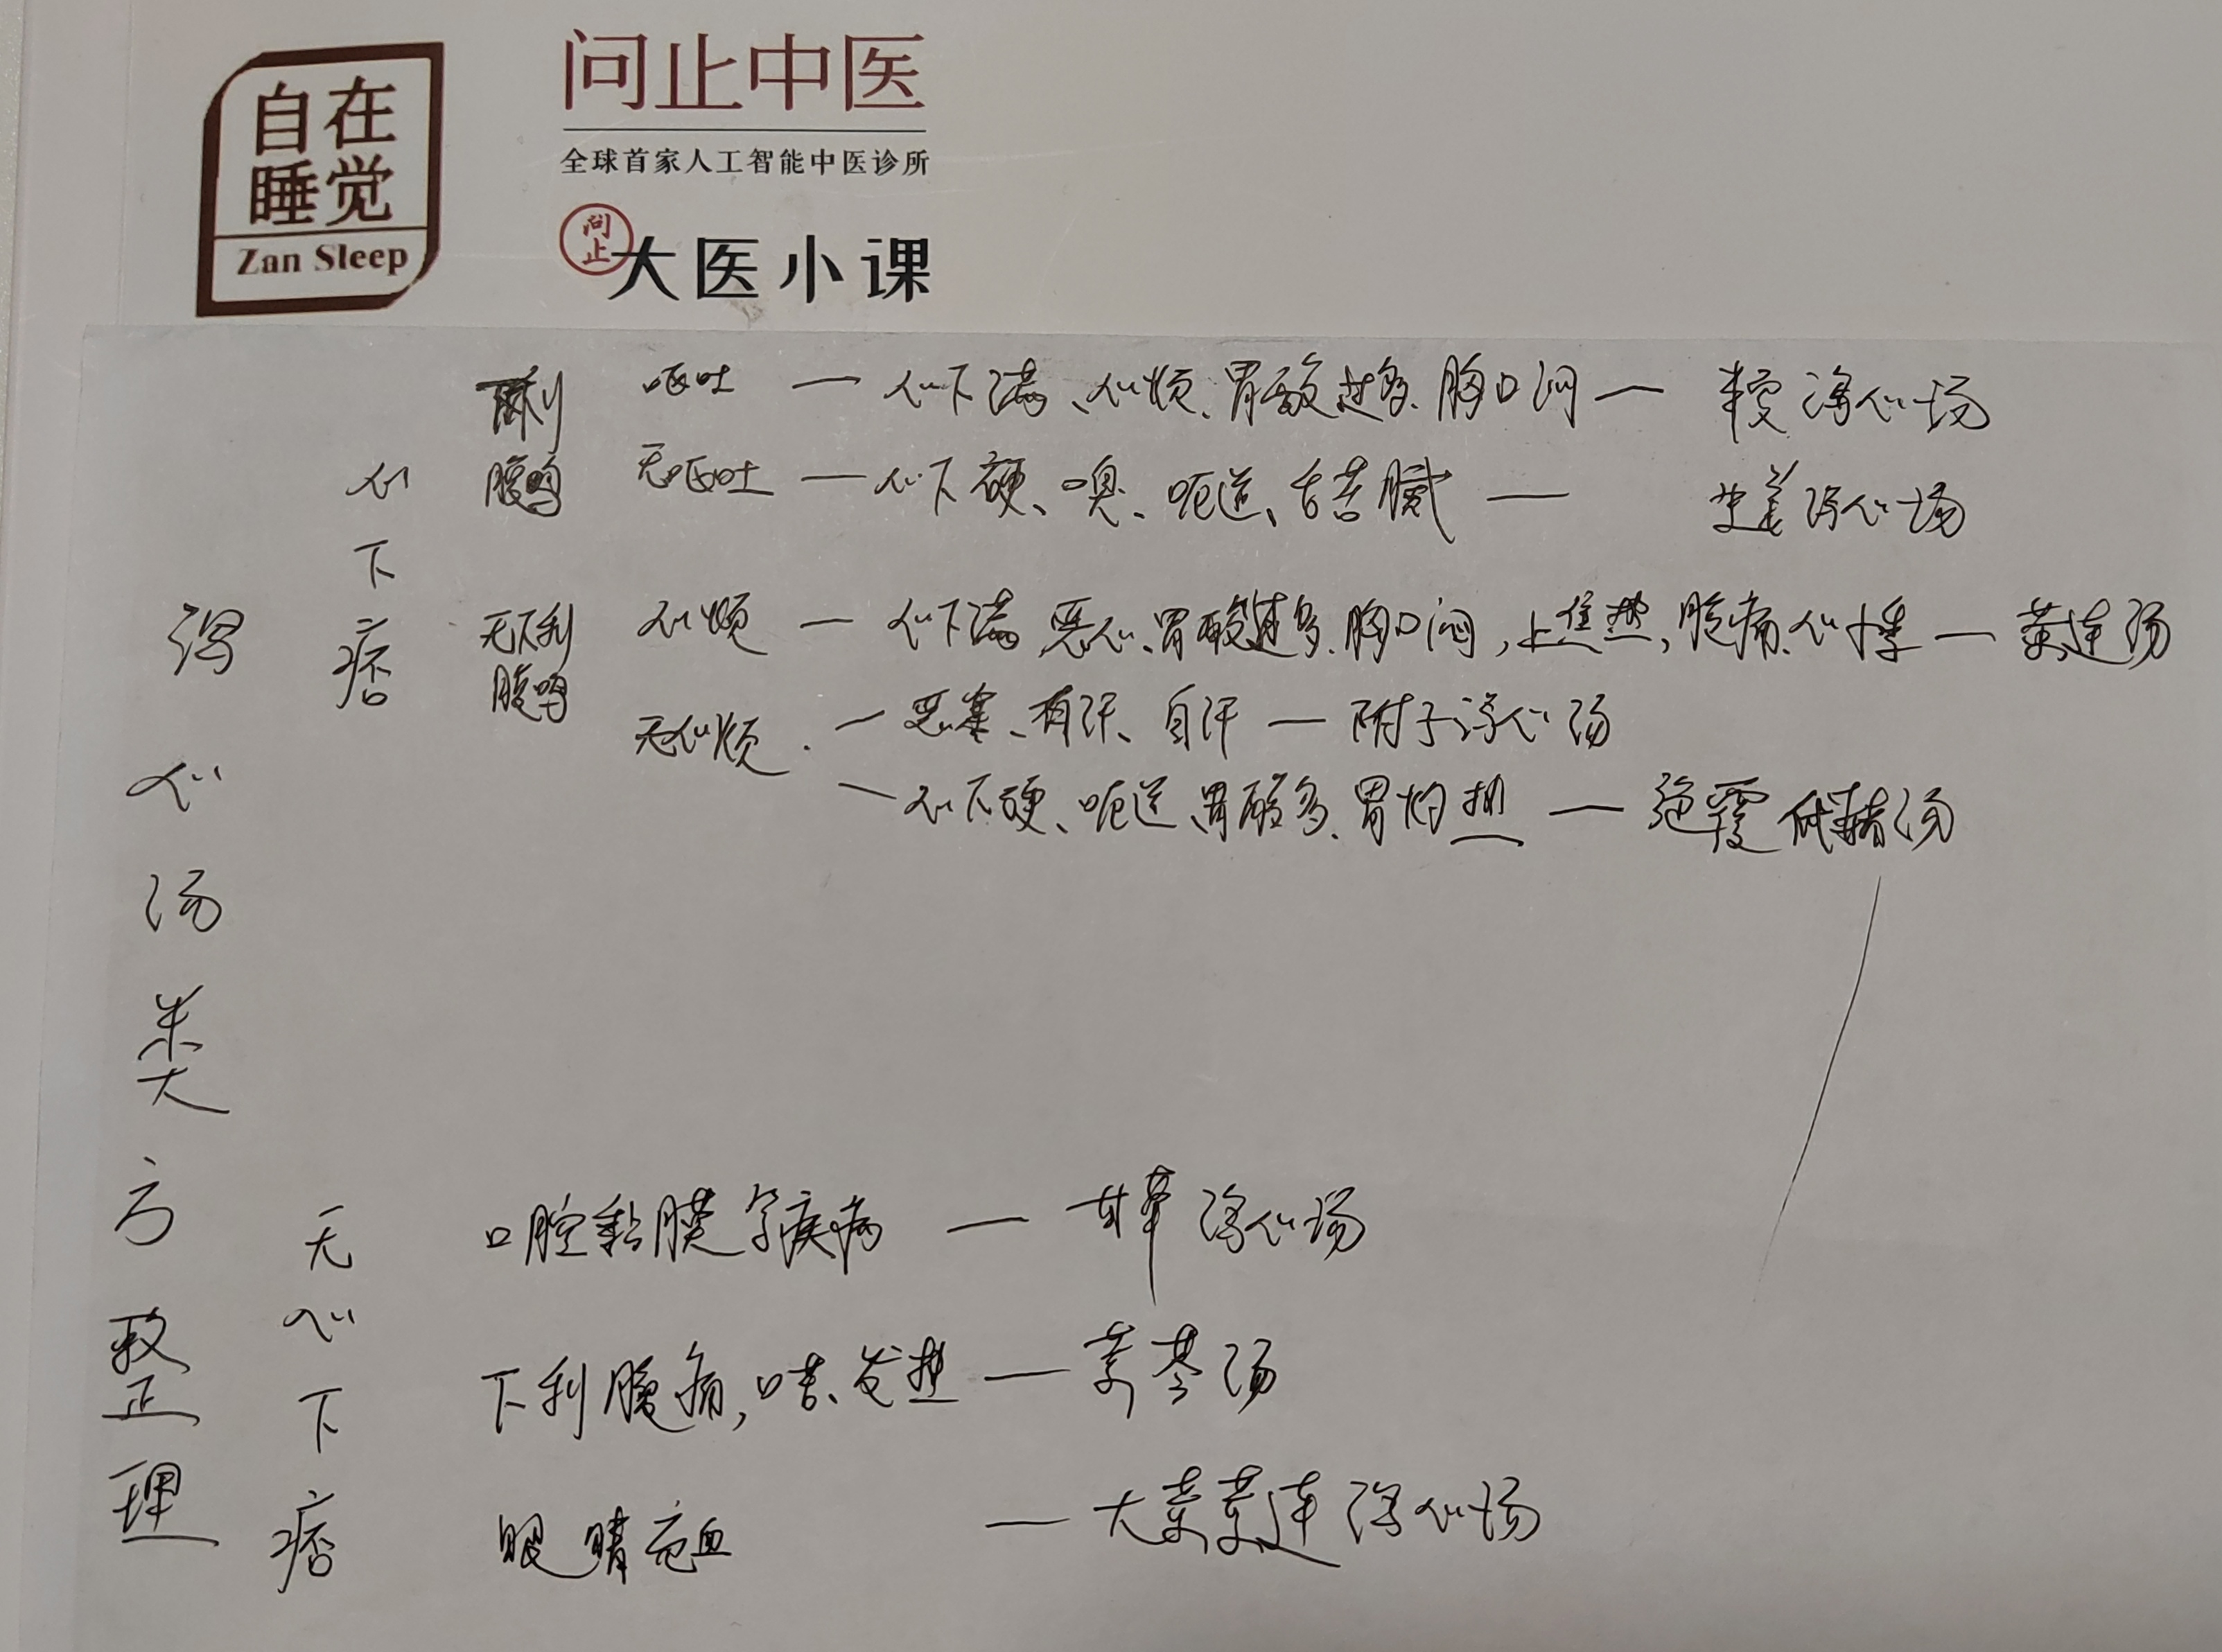 自在
睡觉
Zan Sleep
问止中医
全球首家人工智能中医诊所
问止
大医小课
泻心汤类方整理
心下痞
下利
腹鸣
呕吐 — 心下满、心烦、胃酸过多、胸口闷 — 半夏泻心汤
无呕吐 — 心下硬、噫、呃逆、舌苔腻 — 生姜泻心汤
无下利
腹鸣
心烦 — 心下满、恶心、胃酸过多、胸口闷,上焦热,腹痛、心悸 — 黄连汤
无心烦 — 恶寒、有汗、自汗 — 附子泻心汤
— 心下硬、呃逆、胃酸多、胃灼热 — 旋覆代赭汤
无心下痞
口腔黏膜等疾病 — 甘草泻心汤
下利腹痛,口苦、发热 — 黄芩汤
眼睛充血 — 大黄黄连泻心汤